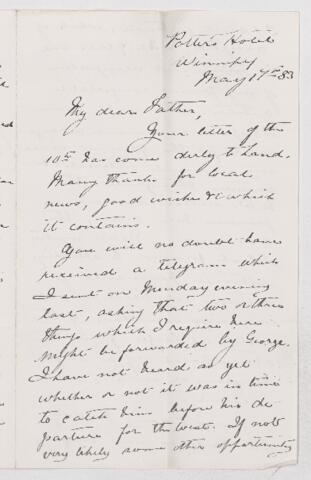 Potter's Hotel
Winnipeg
May 17th 83
My dear Father,
Your letter of the
10th has come duly to hand.
Many thanks for local
news, good wishes &c which
it contains.
You will no doubt have
received a telegram which
I sent on Monday evening
last, asking that two or three
things which I require here
might be forwarded by George.
I have not heard as yet
whether or not it was in time
to catch him before his de
parture for the west. If not
very likely some other opportunity